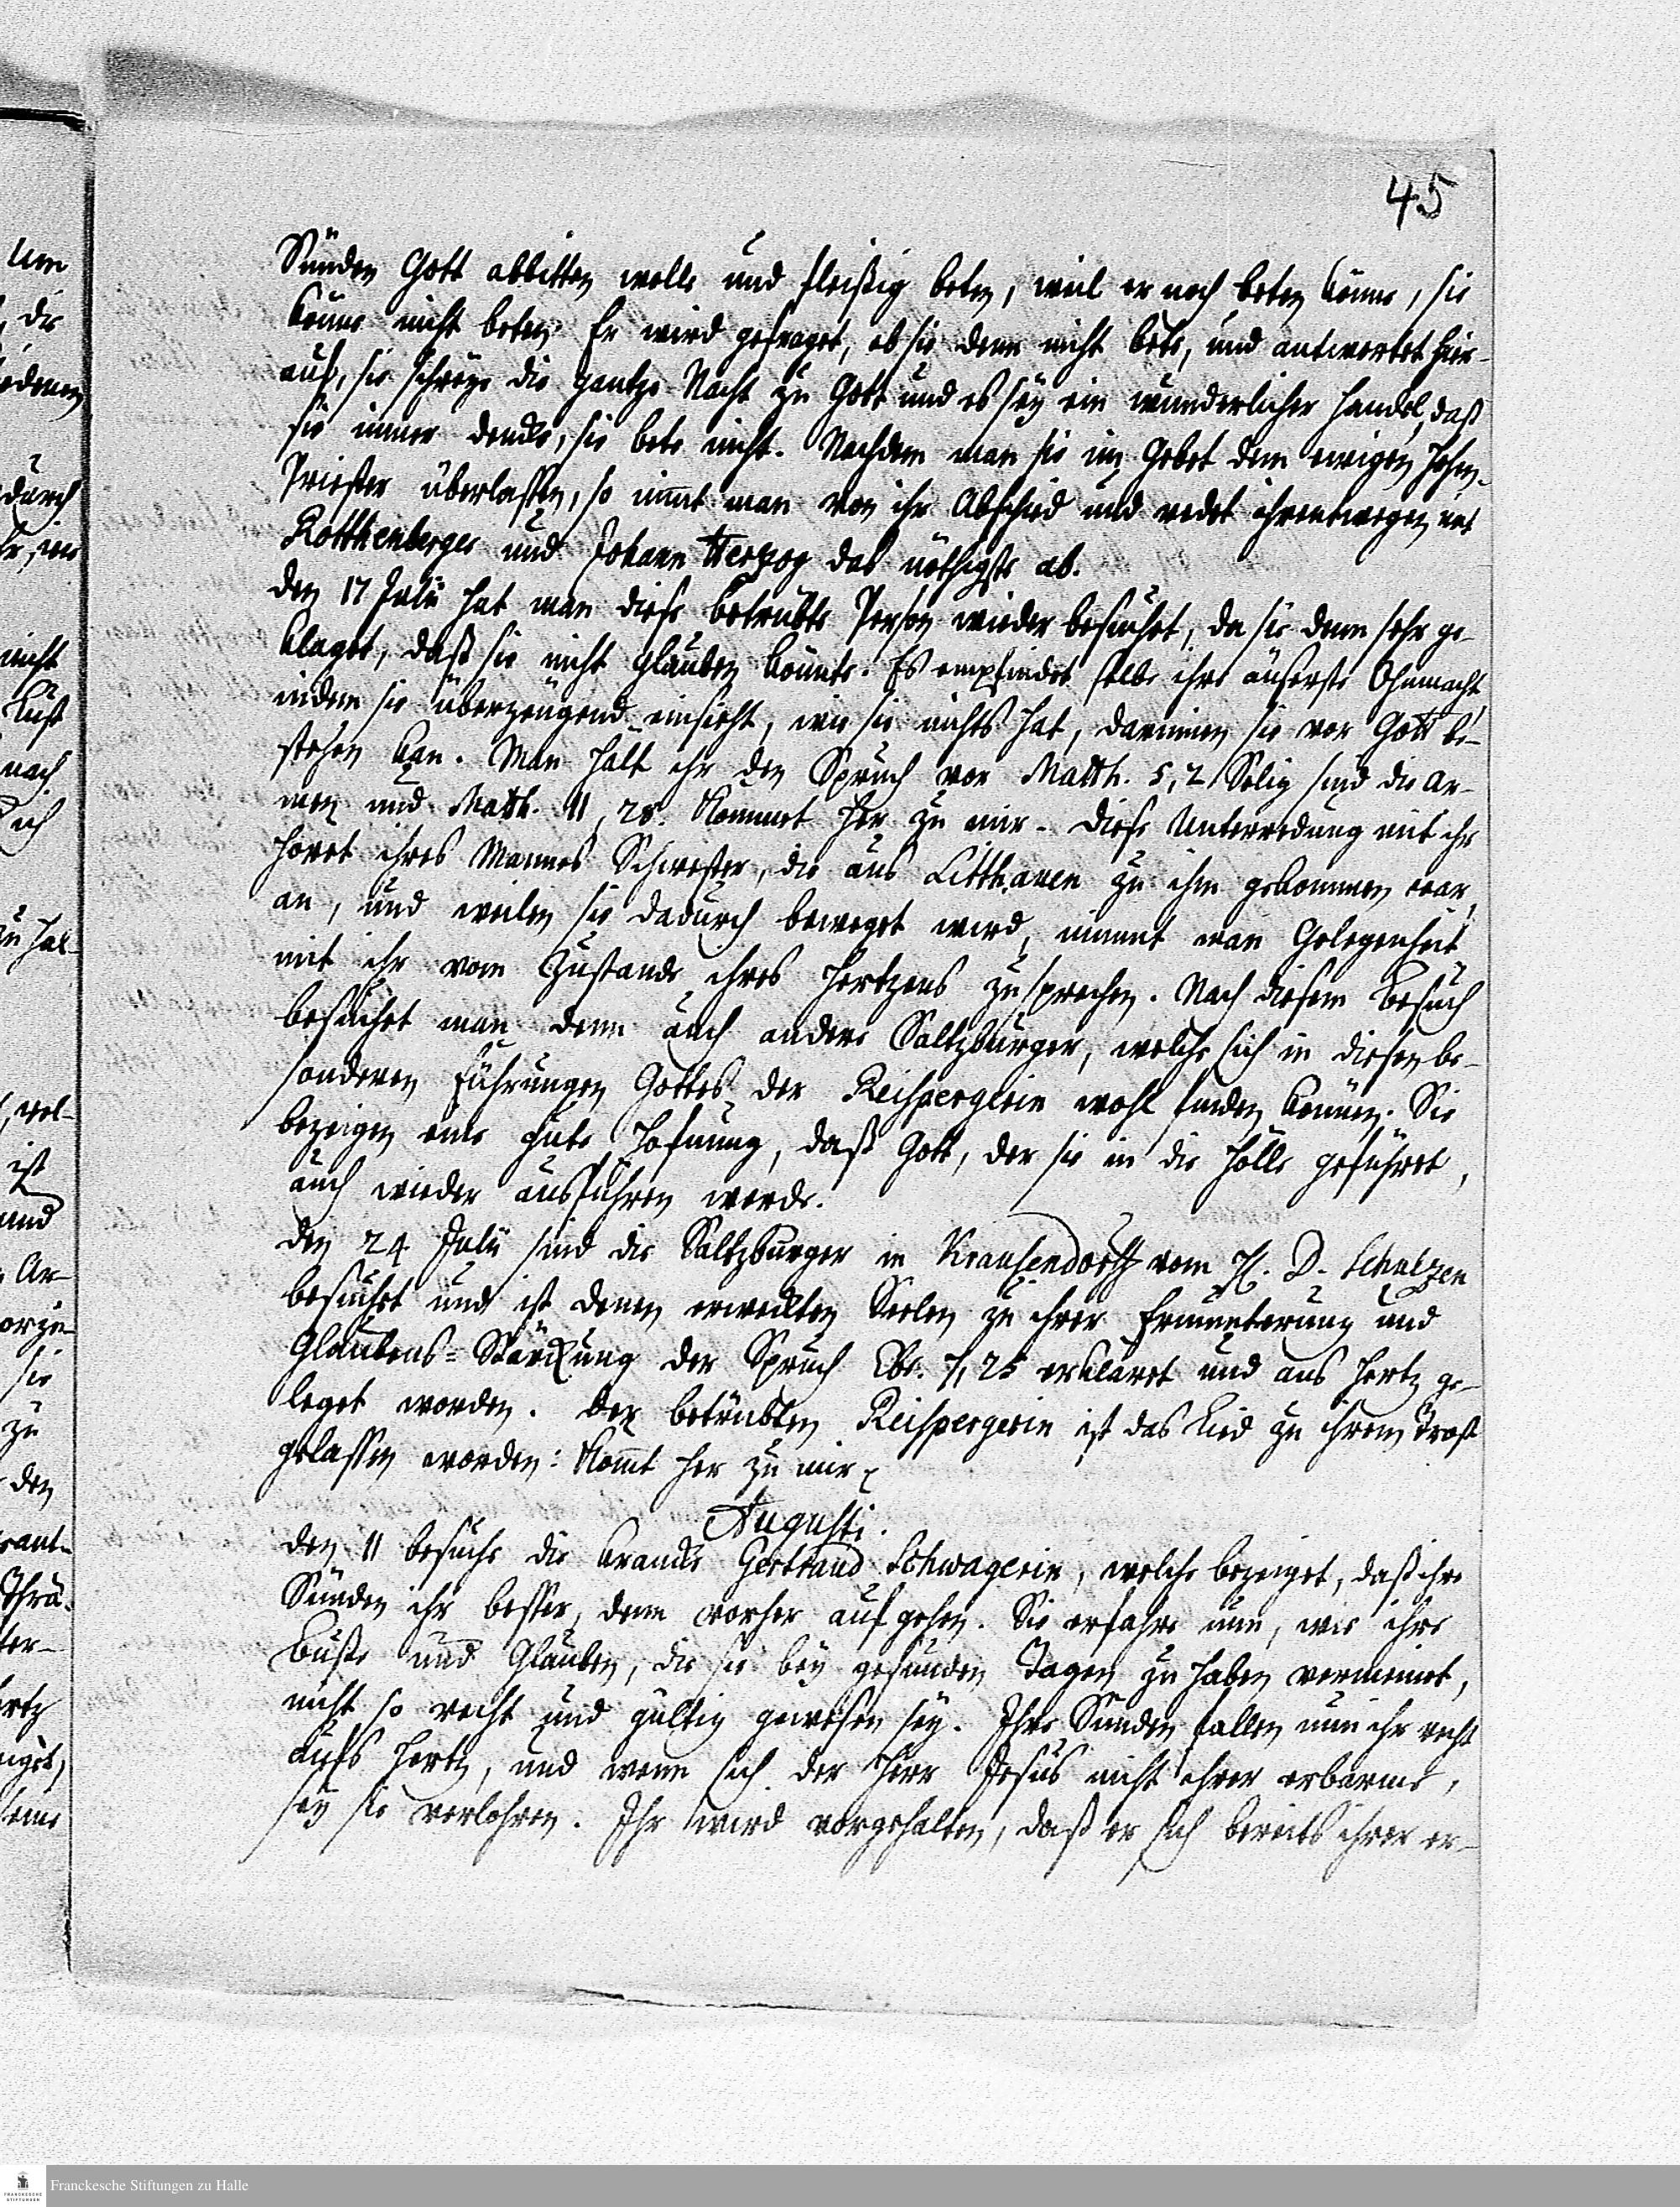 45
Sünden Gott abbitten wolle und fleißig beten, weil er noch beten könne, sie
könne nicht beten. Er wird gefraget, ob sie denn nicht bete, und antwortet hier-
auf, sie schreye die gantze Nacht zu Gott und es sey ein wunderlicher Handel, daß
sie immer dencke, sie bete nicht. Nachdem man sie im Gebet dem ewigen Hohen-
Priester überlaßen, so nimt man von ihr Abschied und redet ihrentwegen mit
Rotthenberger und Johann Herzog das nöthigste ab.
Den 17 Julii hat man diese betrübte Person wieder besuchet, da sie denn sehr ge-
klaget, daß sie nicht glauben könnte. Es empfindet selbe ihre äuserste Ohnmacht,
indem sie überzeugend einsieht, wie sie nichts hat, darinnen sie vor Gott be-
stehen kan. Man hält ihr den Spruch vor Matth. 5, 2 Selig sind die Ar-
men und Matth. 11, 28. Kommet her zu mir. Diese Unterredung mit ihr
höret ihres Mannes Schwester, die aus Litthauen zu ihm gekommen war,
an, und weilen sie dadurch beweget wird, nimmt man Gelegenheit
mit ihr vom Zustande ihres Hertzens zu sprechen. Nach diesem Besuch
besuchet man denn auch andere Saltzburger, welche sich in diesen be-
sonderen Führungen Gottes der Reispergerin wohl finden können. Sie
bezeigen eine gute Hofnung, daß Gott, der sie in die Hölle geführet,
auch wieder ausführen werde.
Den 24 Julii sind die Saltzburger in Krausendorff vom H. D. Schulzen
besuchet und ist denen erweckten Seelen zu ihrer Ermunterung und
Glaubens-Stärckung der Spruch Ebr. 7, 25 erkläret und ans Hertz ge-
leget worden. Der betrübten Reispergerin ist das Lied zu ihrem Trost
gelassen worden: Komt her zu mir
Augusti.
Den 11 besuche die krancke Gertraud Schwagerin, welche bezeiget, daß ihre
Sünden ihr besser, denn vorher aufgehen. Sie erfahre nun, wie ihre
Buße und Glauben, die sie bey gesunden Tagen zu haben vermeinet,
nicht so recht und gültig gewesen sey. Ihre Sünden fallen nun ihr recht
aufs Hertz, und wenn sich der Herr Jesus nicht ihrer erbarme,
sey sie verlohren. Ihr wird vorgehalten, daß er sich bereits ihrer er-
Franckesche Stiftungen zu Halle